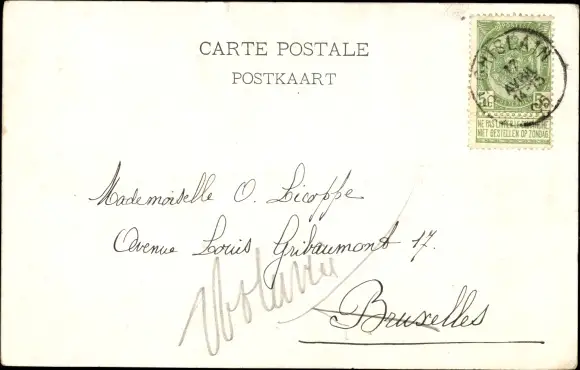 CARTE POSTALE
POSTKAART
GHISLAIN
17
AVRIL
14-15
5c
NE PAS LIVRER LE DIMANCHE
NIET BESTELLEN OP ZONDAG
Mademoiselle O. Licoppe
Avenue Louis Gribaumont 17.
Bruxelles